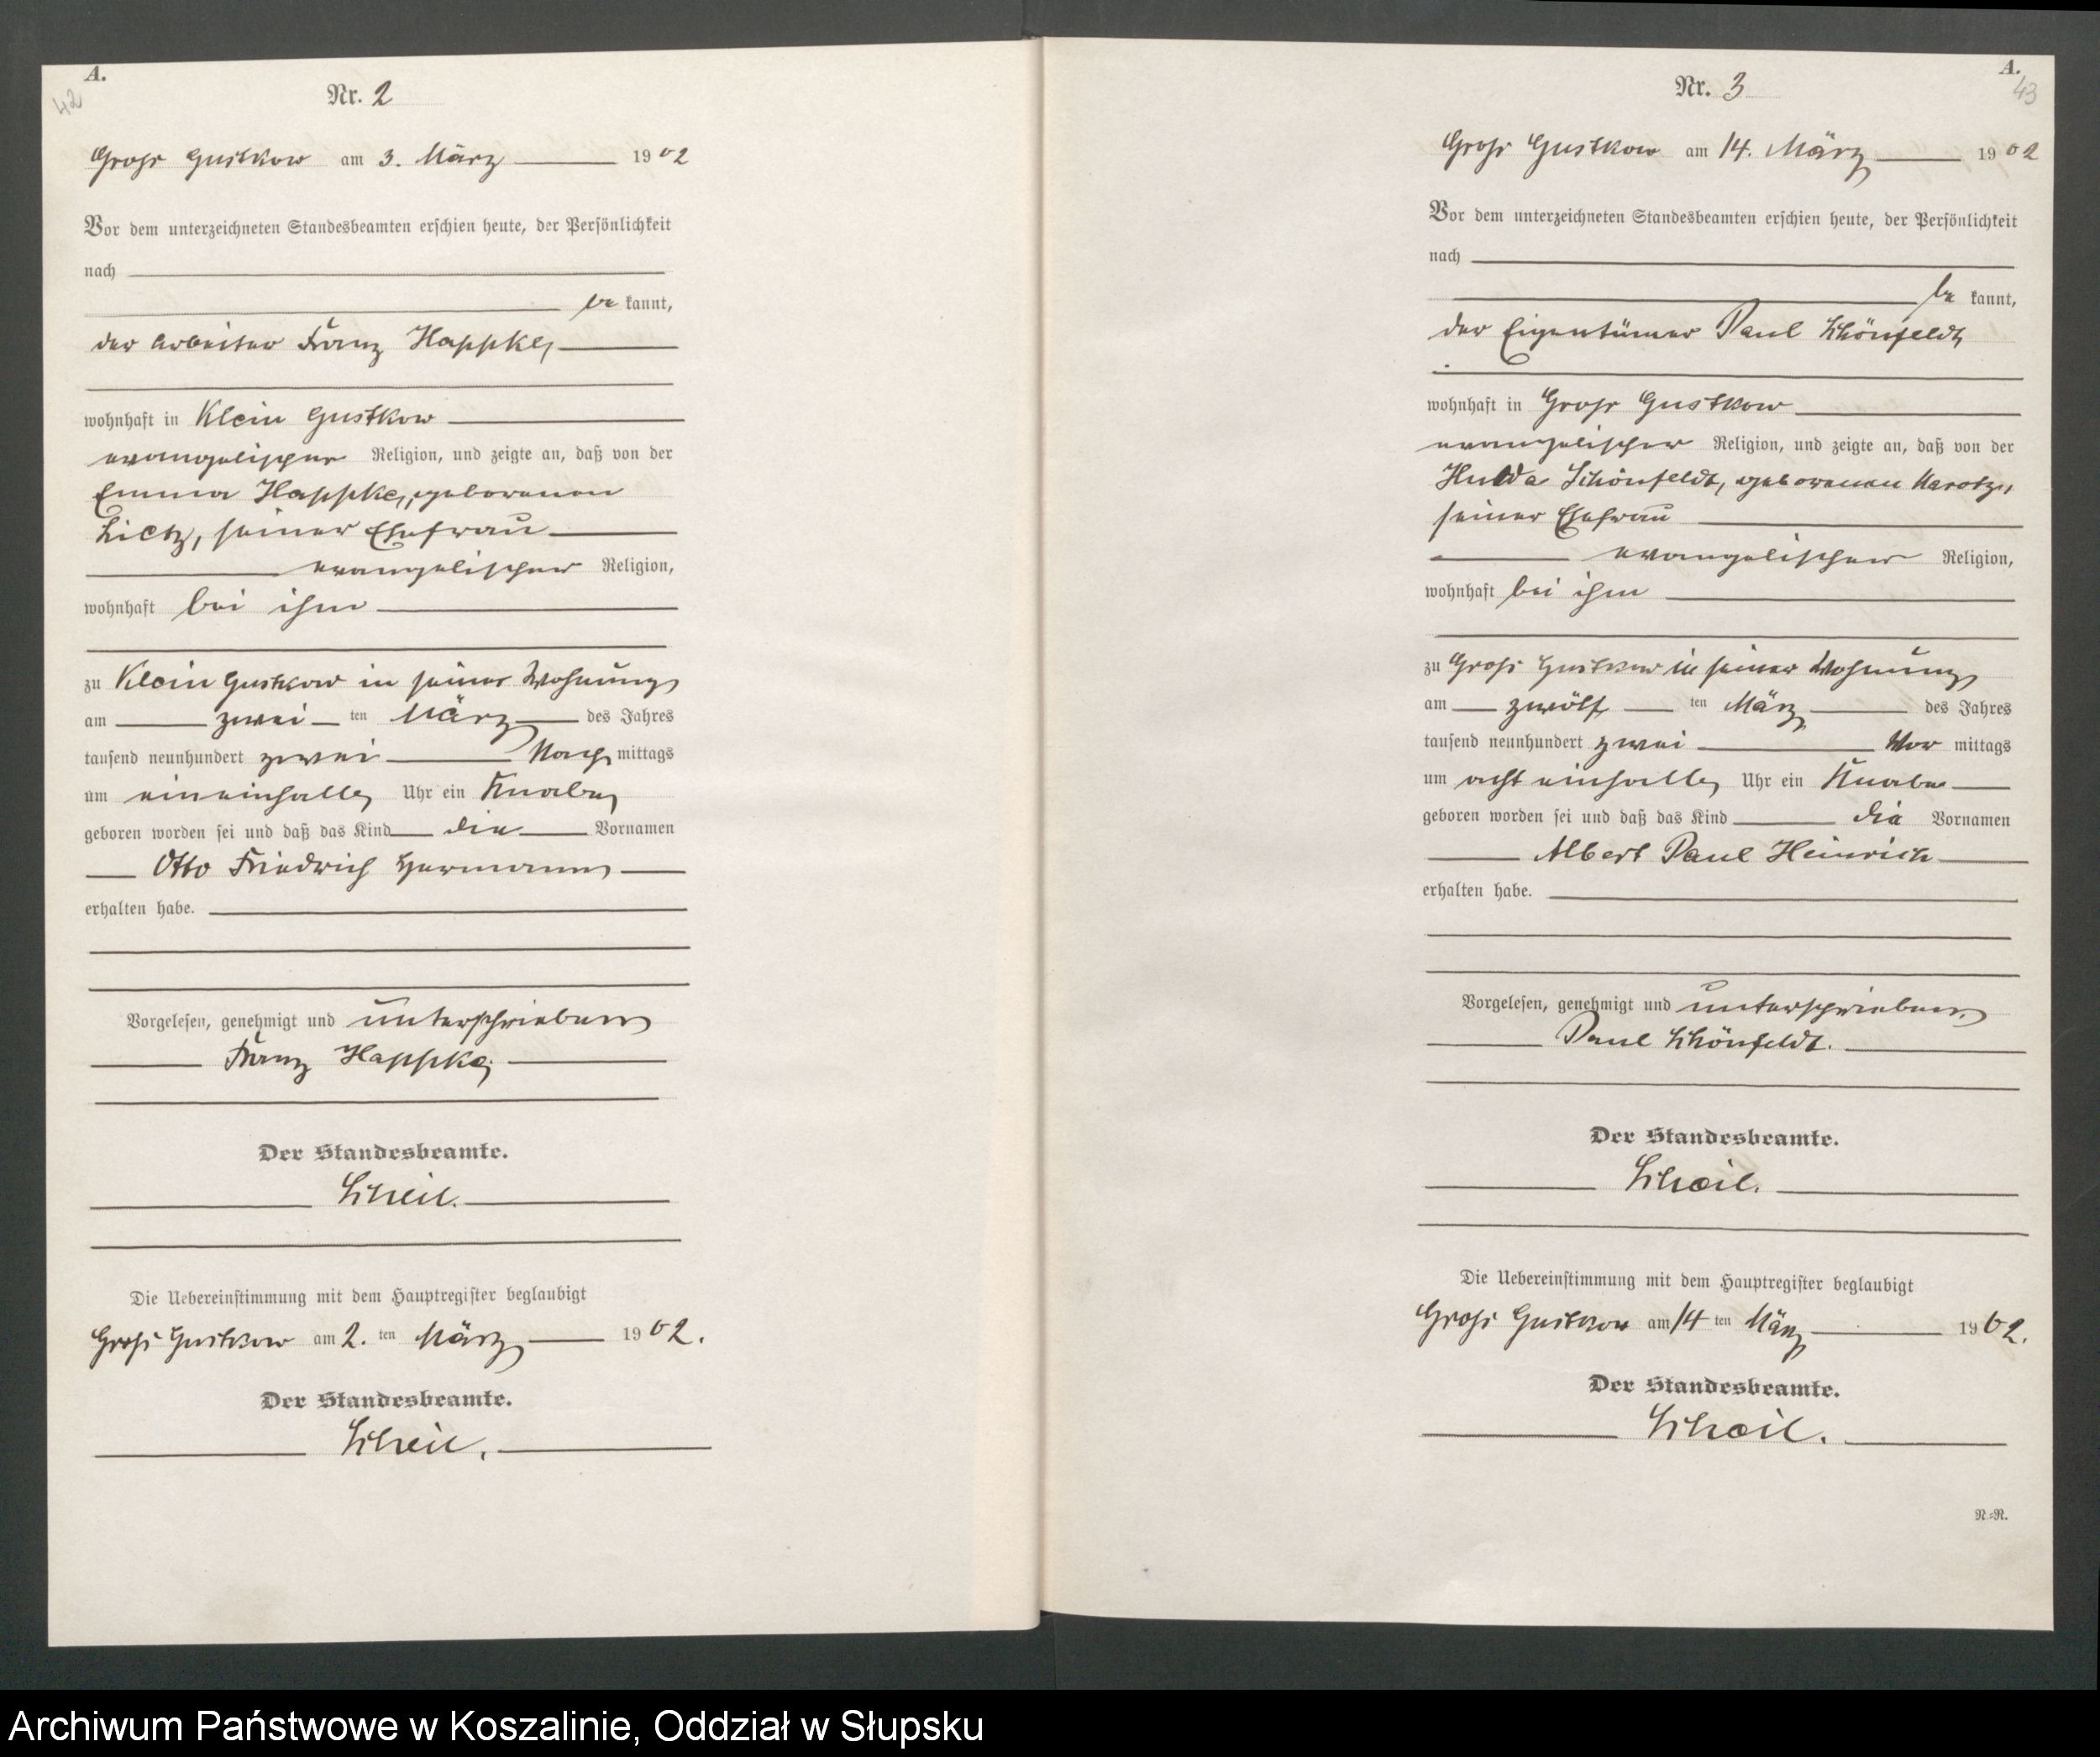 A.
42
Nr. 2
Gross Gustkow am 3. März 1902
Vor dem unterzeichneten Standesbeamten erschien heute, der Persönlichkeit
nach
be kannt,
der Arbeiter Franz Happke,
wohnhaft in Klein Gustkow
evangelischer Religion, und zeigte an, daß von der
Emma Happke, geborenen
Lietz, seiner Ehefrau
evangelischer Religion,
wohnhaft bei ihm
zu Klein Gustkow in seiner Wohnung
am zwei ten März des Jahres
tausend neunhundert zwei Nach mittags
um eineinhalb Uhr ein Knabe
geboren worden sei und daß das Kind die Vornamen
Otto Friedrich Hermann
erhalten habe.
Vorgelesen, genehmigt und unterschrieben
Franz Happke
Der Standesbeamte.
Scheil.
Die Uebereinstimmung mit dem Hauptregister beglaubigt
Gross Gustkow am 2. ten März 1902.
Der Standesbeamte.
Scheil.
A.
43
Nr. 3
Gross Gustkow am 14. März 1902
Vor dem unterzeichneten Standesbeamten erschien heute, der Persönlichkeit
nach
be kannt,
der Eigentümer Paul Schönfeldt,
wohnhaft in Gross Gustkow
evangelischer Religion, und zeigte an, daß von der
Hulda Schönfeldt, geborenen
seiner Ehefrau
evangelischer Religion,
wohnhaft bei ihm
zu Gross Gustkow in seiner Wohnung
am zwölf ten März des Jahres
tausend neunhundert zwei Vor mittags
um acht einhalb Uhr ein Knabe
geboren worden sei und daß das Kind die Vornamen
Albert Paul Heinrich
erhalten habe.
Vorgelesen, genehmigt und unterschrieben
Paul Schönfeldt.
Der Standesbeamte.
Scheil.
Die Uebereinstimmung mit dem Hauptregister beglaubigt
Gross Gustkow am 14 ten März 1902.
Der Standesbeamte.
Scheil.
N=N.
Archiwum Państwowe w Koszalinie, Oddział w Słupsku